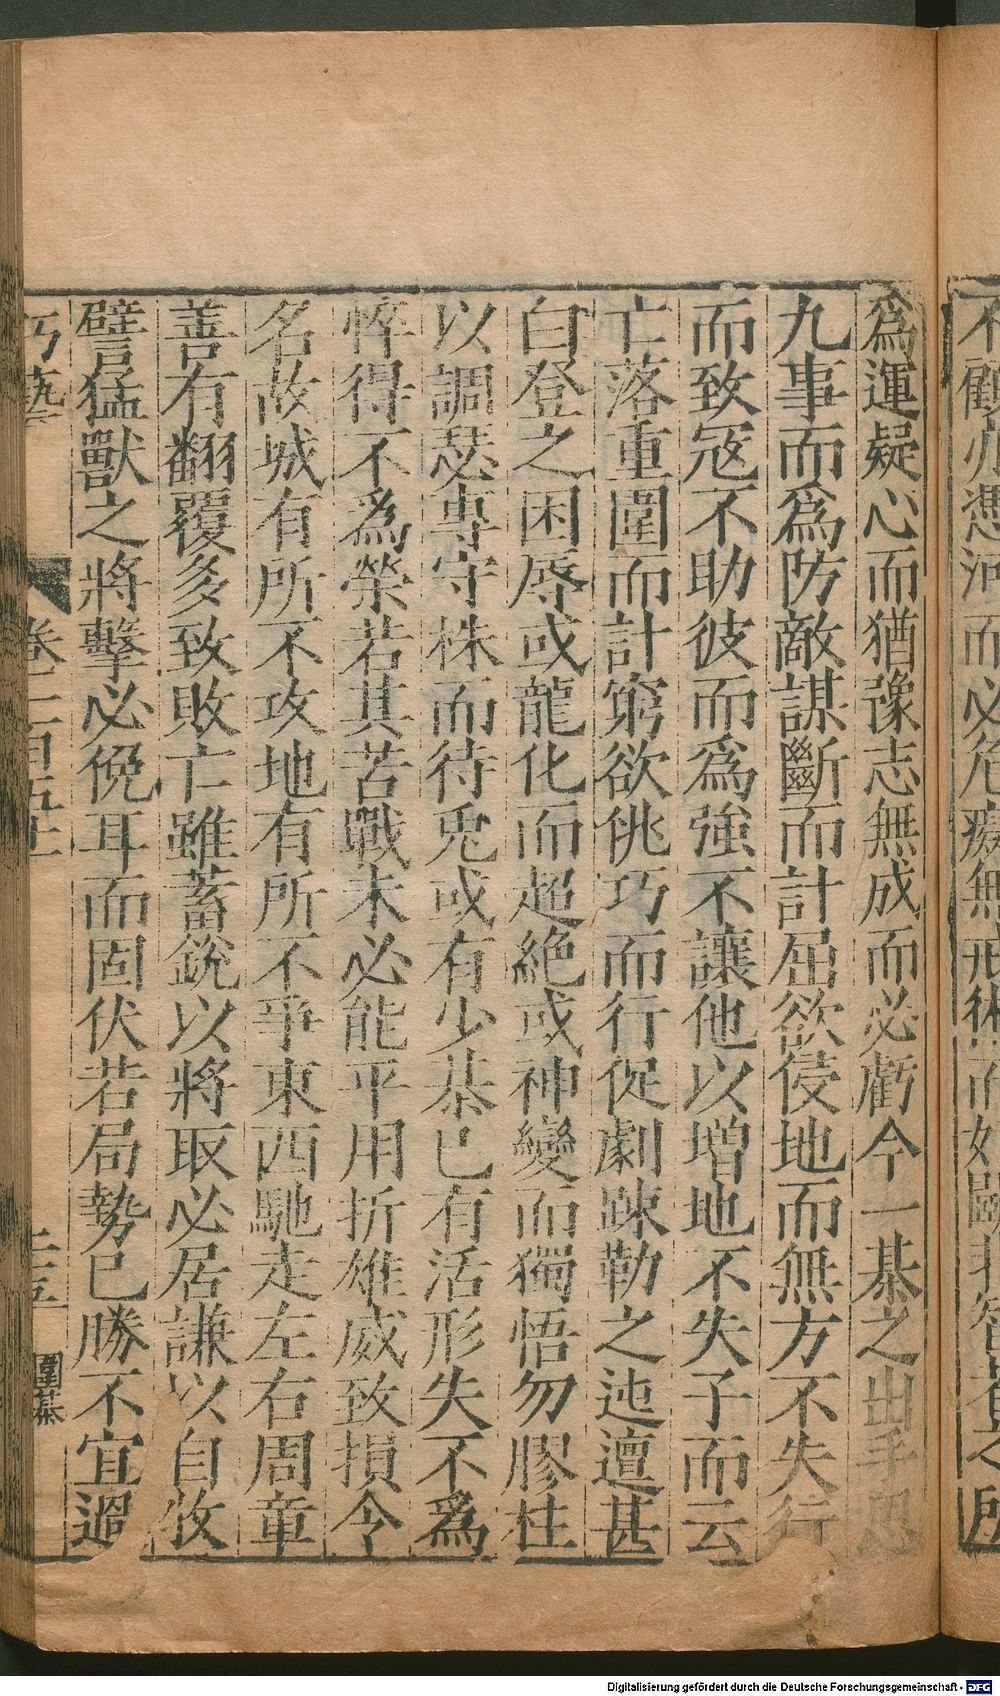 不顧亦憑河而必危癡無戒術而好鬪
爲運疑心而猶豫志無成而必虧今一棊之出手思
九事而爲防敵謀斷而計屈欲侵地而無方不失行
而致寇不助彼而爲強不讓他以増地不失子而云
亡落重圍而計窮欲佻巧而行促劇踈勒之迍邅甚
白登之困辱或龍化而超絶或神變而獨悟勿膠柱
以調瑟專守株而待兎或有少棊已有活形失不爲
悴得不爲榮若其苦戰未必能平用折雄威致損令
名故城有所不攻地有所不爭東西馳走左右周章
善有翻覆多致敗亡雖蓄銳以將取必居謙以自牧
譬猛獸之將擊必俛耳而固伏若局勢已勝不宜過
巧藝 卷三百五十 圍棊
Digitalisierung gefördert durch die Deutsche Forschungsgemeinschaft - DFG